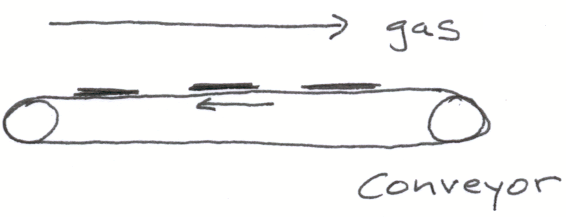 gas
Conveyor